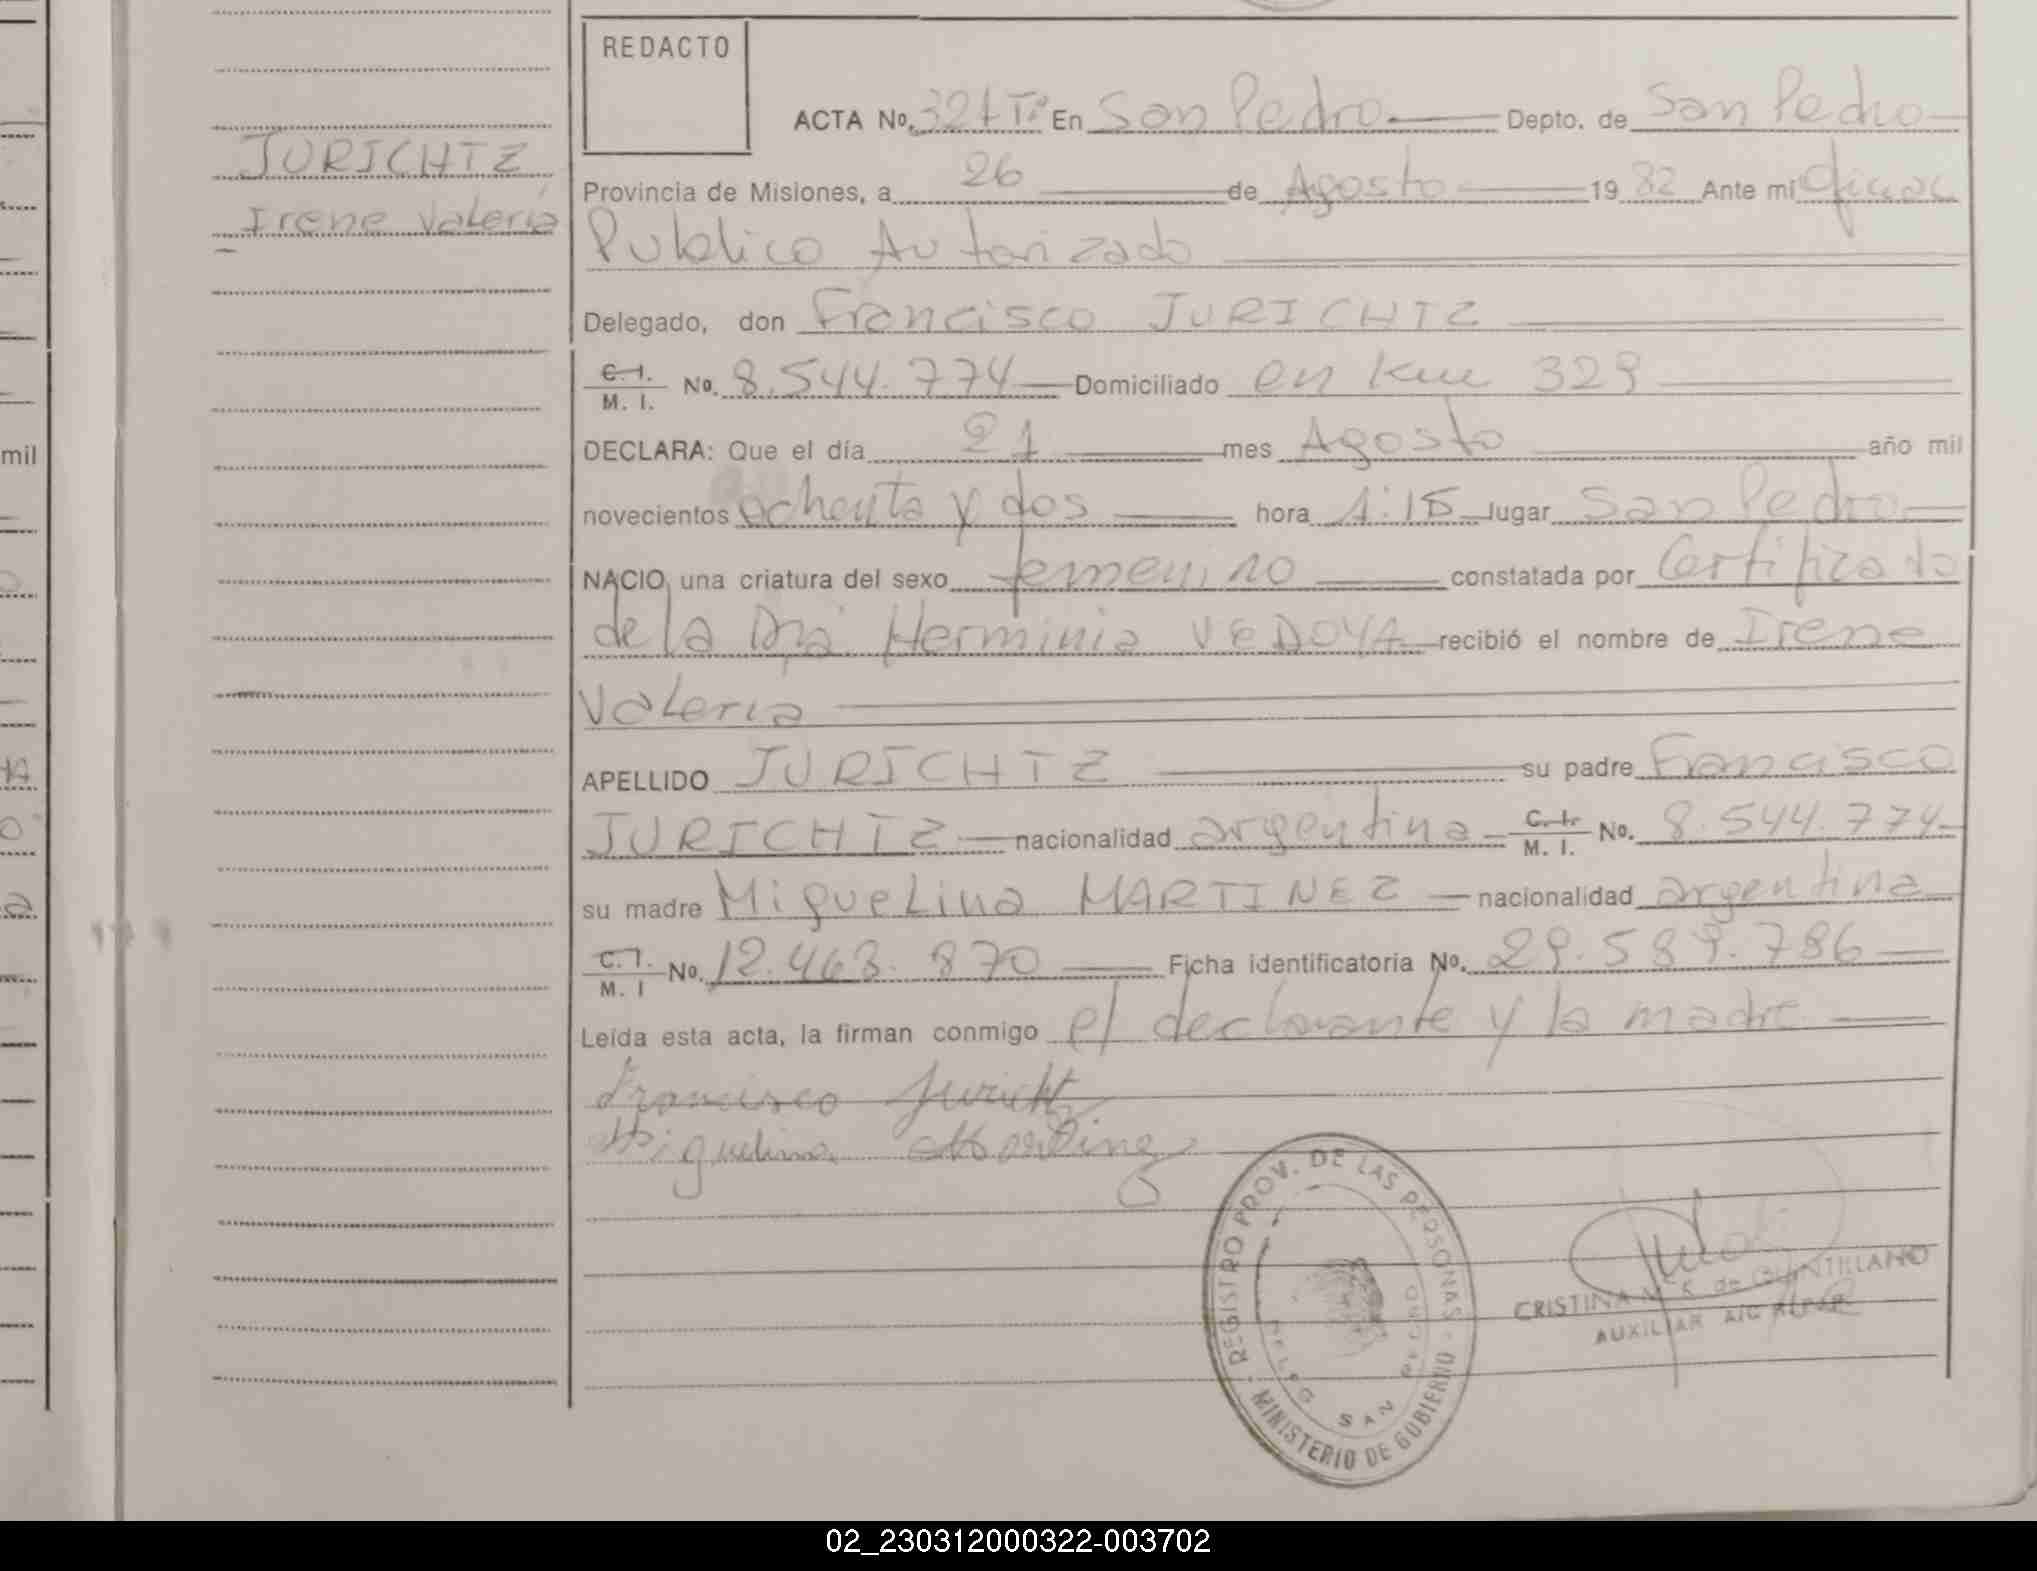 REDACTO
ACTA No. 321 Tº En San Pedro Depto. de San Pedro
JURICHTZ
Irene Valeria
Provincia de Misiones, a 26 de Agosto 19 82 Ante mi Oficial
Publico Autorizado
Delegado, don Francisco JURICHTZ
C. I. M. I. No. 8.544.774 Domiciliado en km 329
DECLARA: Que el día 21 mes Agosto año mil
novecientos ochenta y dos hora 1:15 lugar San Pedro
NACIO una criatura del sexo femenino constatada por Certificado
de la Dra Herminia VEDOYA recibió el nombre de Irene
Valeria
APELLIDO JURICHTZ su padre Francisco
JURICHTZ nacionalidad argentina C. I. M. I. No. 8.544.774
su madre Miguelina MARTINEZ nacionalidad argentina
C. I. M. I No. 12.463.870 Ficha identificatoria No. 29.589.786
Leída esta acta, la firman conmigo el declarante y la madre
Francisco Jurichtz
Miguelina Martinez
REGISTRO PROV. DE LAS PERSONAS - MINISTERIO DE GOBIERNO
DELEG SAN PEDRO
CRISTINA N. K. de QUINTILLANO
AUXILIAR
mil
02_230312000322-003702